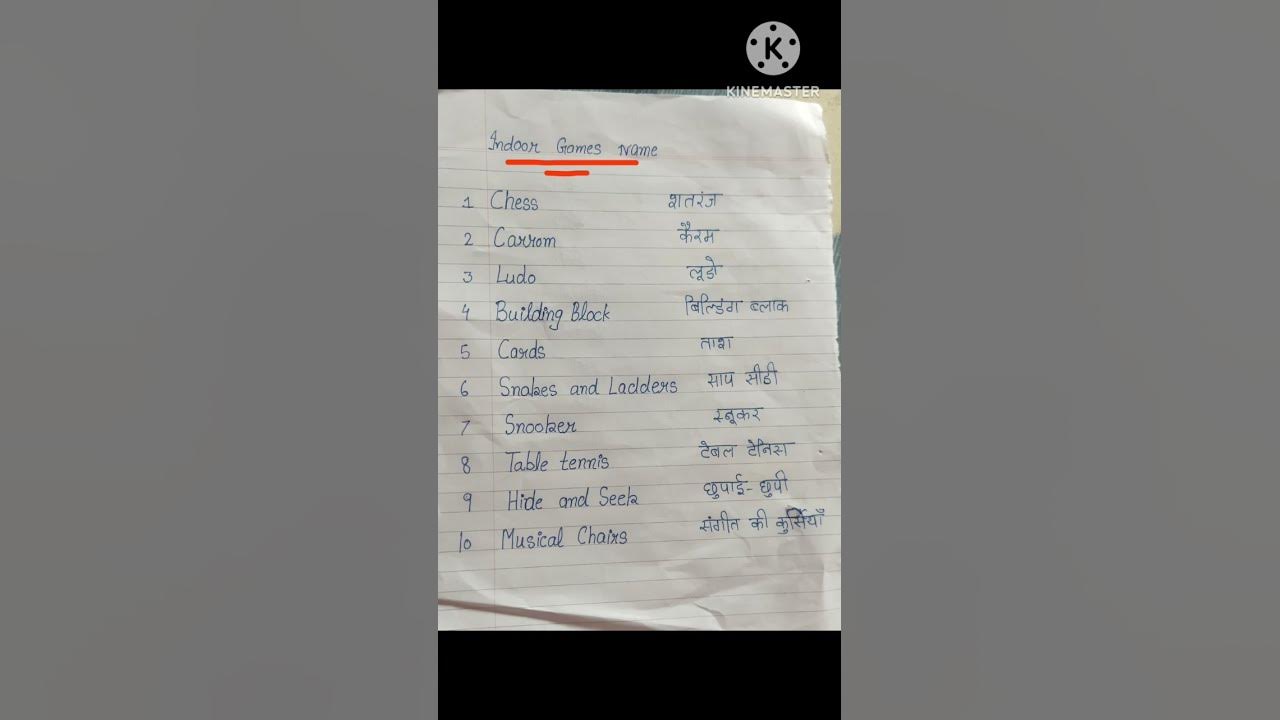 K
KINEMASTER
Indoor Games Name
1 Chess शतरंज
2 Carrom कैरम
3 Ludo लूडो
4 Building Block बिल्डिंग ब्लाक
5 Cards ताश
6 Snakes and Ladders साप सीढी
7 Snooker स्नूकर
8 Table tennis टेबल टेनिस
9 Hide and Seek छुपाई-छुपी
10 Musical Chairs संगीत की कुर्सियाँ